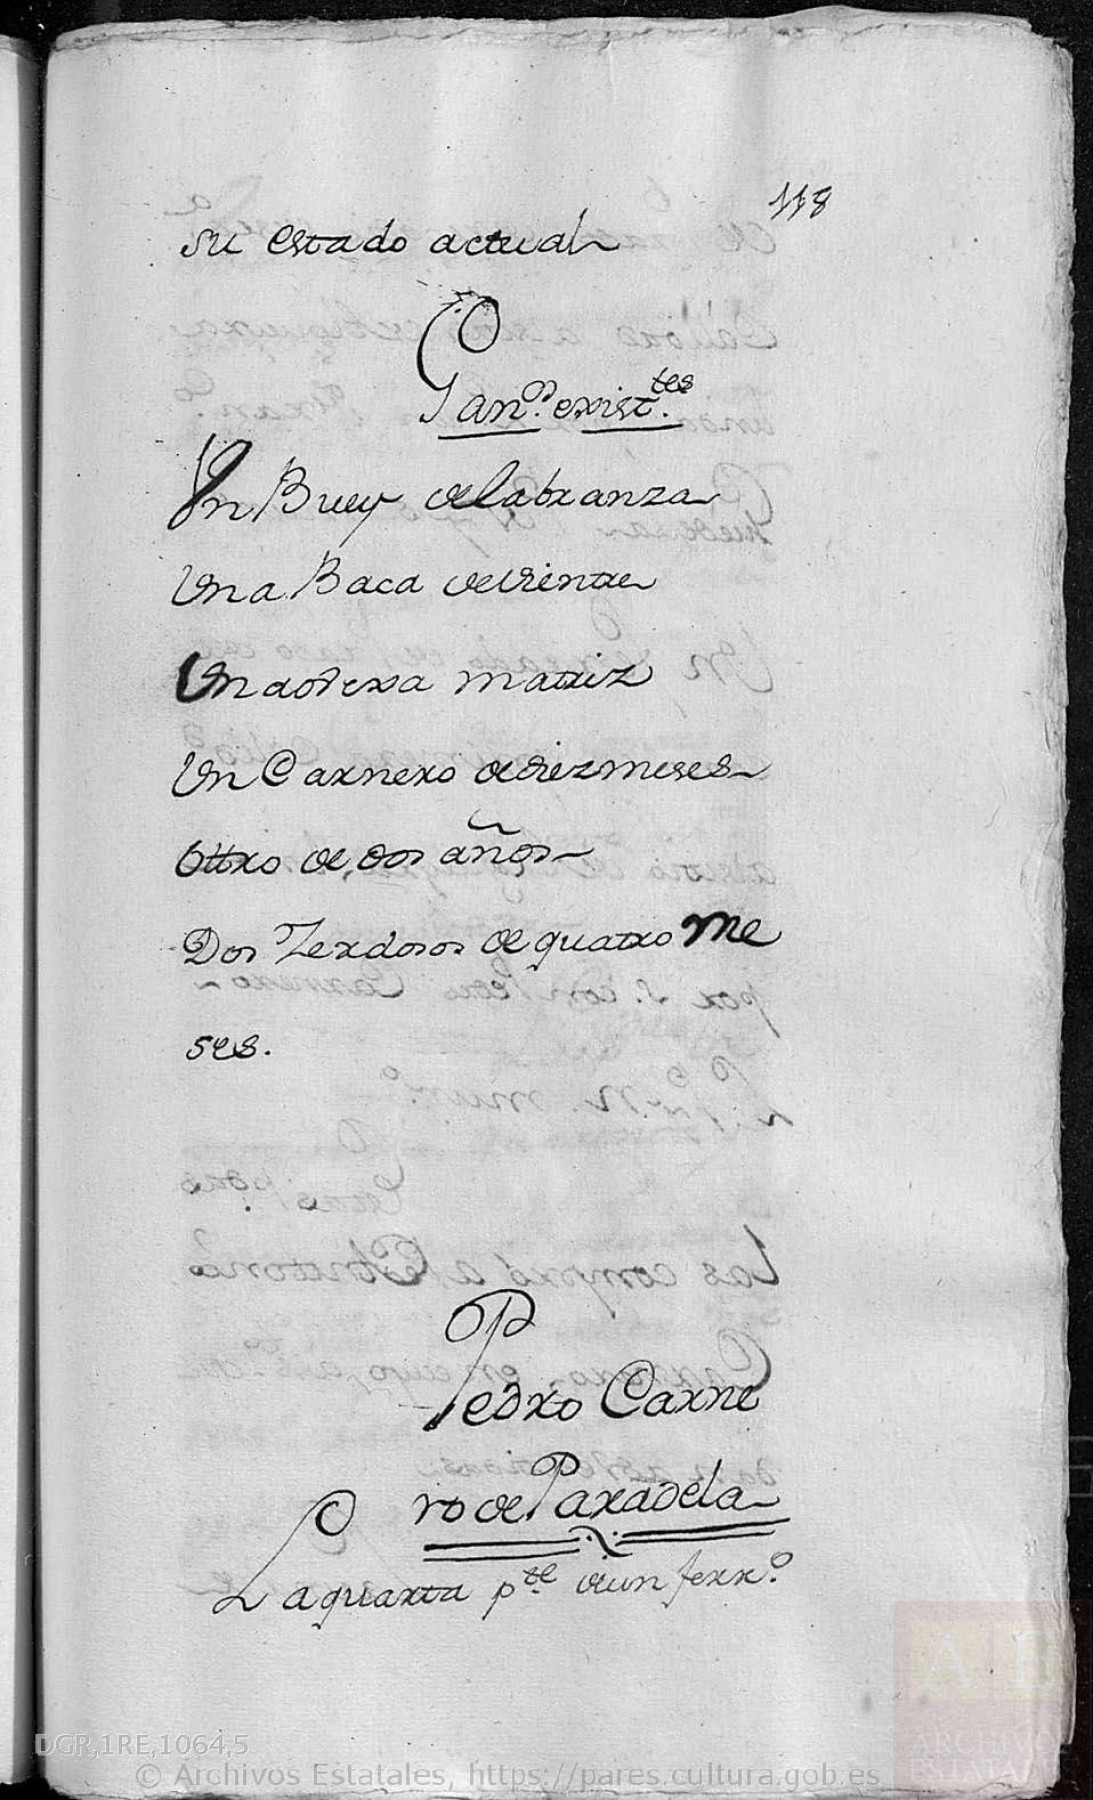 118
su estado actual
Gan.º exist.tes
Un Buey de labranza
Una Baca de vientre
Una obexa matriz
Un Carnero de diez meses
Ottro de dos años
Dos Zerdosos de quatro me
ses.
Pedro Carne
ro de Paradela
La quarta p.te de un ferr.º
DGR,1RE,1064,5
© Archivos Estatales, https://pares.cultura.gob.es
ARCHIVOS
ESTATALES